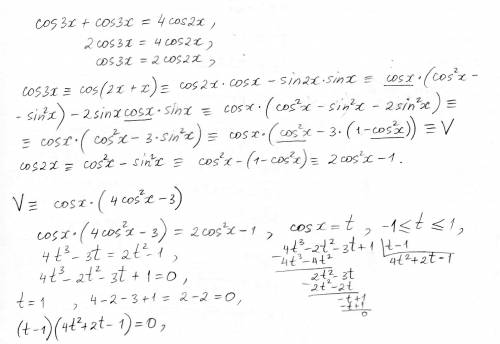 cos3x + cos3x = 4cos2x,
2cos3x = 4cos2x,
cos3x = 2cos2x,
cos3x ≡ cos(2x+x) ≡ cos2x·cosx − sin2x·sinx ≡ cosx·(cos²x −
− sin²x) − 2sinxcosx·sinx ≡ cosx·(cos²x − sin²x − 2sin²x) ≡
≡ cosx·(cos²x − 3·sin²x) ≡ cosx·(cos²x − 3·(1−cos²x)) ≡ V
cos2x ≡ cos²x − sin²x ≡ cos²x − (1−cos²x) ≡ 2cos²x − 1.
V ≡ cosx·(4cos²x − 3)
cosx·(4cos²x − 3) = 2cos²x − 1, cosx = t, −1 ≤ t ≤ 1,
4t³ − 3t = 2t² − 1,
4t³ − 2t² − 3t + 1 = 0,
t = 1, 4 − 2 − 3 + 1 = 2 − 2 = 0,
(t−1)(4t² + 2t − 1) = 0,
4t³ − 2t² − 3t + 1 | t − 1
− 4t³ − 4t² 4t² + 2t − 1
2t² − 3t
− 2t² − 2t
−t + 1
− −t + 1
0